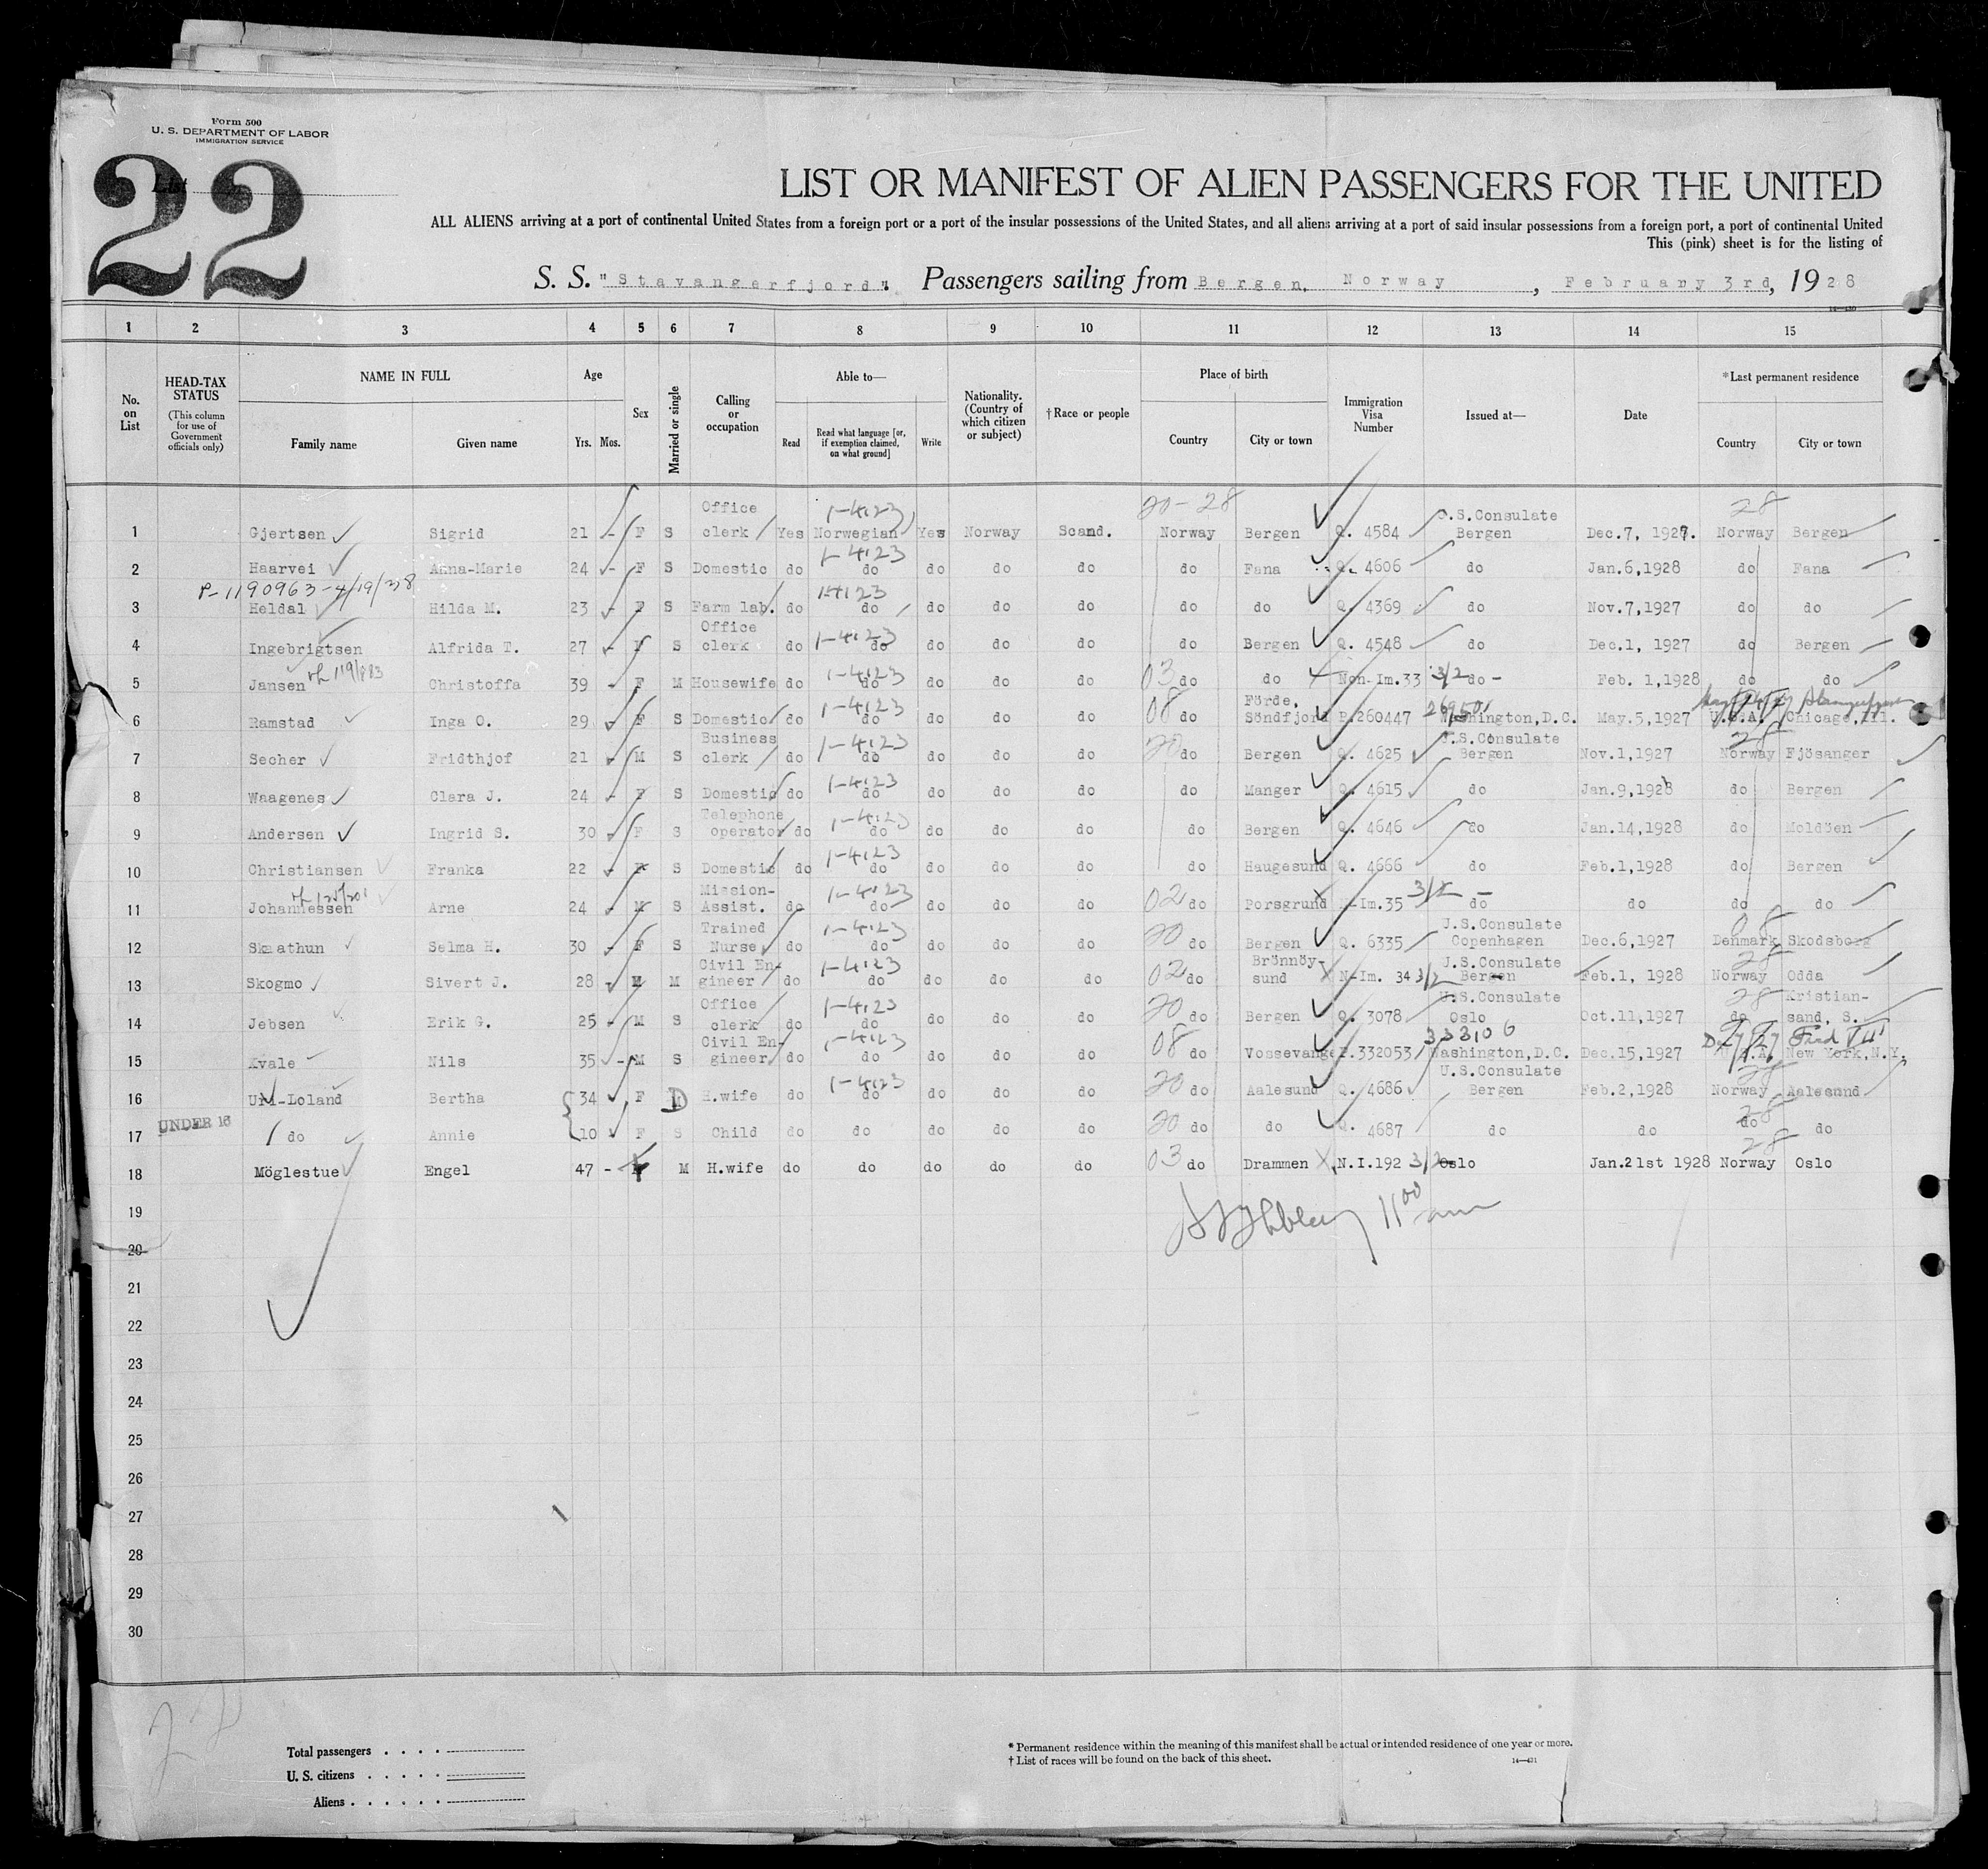 Form 500
U. S. DEPARTMENT OF LABOR
IMMIGRATION SERVICE
List
22
LIST OR MANIFEST OF ALIEN PASSENGERS FOR THE UNITED
ALL ALIENS arriving at a port of continental United States from a foreign port or a port of the insular possessions of the United States, and all aliens arriving at a port of said insular possessions from a foreign port, a port of continental United
This (pink) sheet is for the listing of
S. S. "Stavangerfjord". Passengers sailing from Bergen, Norway, February 3rd, 1928
14—430
1 2 3 4 5 6 7 8 9 10 11 12 13 14 15
No. on List
HEAD-TAX STATUS (This column for use of Government officials only)
NAME IN FULL Family name Given name
Age Yrs. Mos.
Sex
Married or single
Calling or occupation
Able to— Read Read what language [or, if exemption claimed, on what ground] Write
Nationality. (Country of which citizen or subject)
† Race or people
Place of birth Country City or town
Immigration Visa Number
Issued at—
Date
*Last permanent residence Country City or town
20-28 28
1 Gjertsen Sigrid 21 - F S Office clerk Yes Norwegian 1-4123 Yes Norway Scand. Norway Bergen Q. 4584 U.S.Consulate Bergen Dec.7, 1927. Norway Bergen
2 Haarvei Anna-Marie 24 - F S Domestic do do 1-4123 do do do do Fana Q. 4606 do Jan.6,1928 do Fana
P-1190963-4/19/38
3 Heldal Hilda M. 23 - F S Farm lab. do do 1-4123 do do do do do Q. 4369 do Nov.7,1927 do do
4 Ingebrigtsen Alfrida T. 27 - F S Office clerk do do 1-4123 do do do do Bergen Q. 4548 do Dec.1, 1927 do Bergen
5 Jansen Christoffa 39 - F M Housewife do do 1-4123 do do do 03 do do Non-Im.33 3/2 do - Feb. 1,1928 do do
6 Ramstad Inga O. 29 F S Domestic do do 1-4123 do do do 08 do Förde, Söndfjord P.260447 Washington,D.C. May.5,1927 U.S.A. Chicago,Ill.
7 Secher Fridthjof 21 - M S Business clerk do do 1-4123 do do do 20 do Bergen Q. 4625 U.S.Consulate Bergen Nov.1,1927 28 Norway Fjösanger
8 Waagenes Clara J. 24 - F S Domestic do do 1-4123 do do do do Manger Q. 4615 do Jan.9,1928 do Bergen
9 Andersen Ingrid S. 30 - F S Telephone operator do do 1-4123 do do do do Bergen Q. 4646 do Jan.14,1928 do Moldöen
10 Christiansen Franka 22 - F S Domestic do do 1-4123 do do do do Haugesund Q. 4666 do Feb.1,1928 do Bergen
11 Johannessen Arne 24 - M S Mission-Assist. do do 1-4123 do do do 02 do Porsgrund N-Im.35 3/2 do do do do
12 Skaathun Selma H. 30 - F S Trained Nurse do do 1-4123 do do do 20 do Bergen Q. 6335 U.S.Consulate Copenhagen Dec.6,1927 08 Denmark Skodsborg
13 Skogmo Sivert J. 28 - M M Civil Engineer do do 1-4123 do do do 02 do Brönnöy-sund N-Im. 34 3/2 U.S.Consulate Bergen Feb.1, 1928 28 Norway Odda
14 Jebsen Erik G. 25 - M S Office clerk do do 1-4123 do do do 20 do Bergen Q. 3078 U.S.Consulate Oslo Oct.11,1927 28 do Kristian-sand, S.
15 Kvale Nils 35 - M S Civil En-gineer do do 1-4123 do do do 08 do Vossevangen P.332053 333106 Washington,D.C. Dec.15,1927 U.S.A. New York,N.Y.
16 Uri-Loland Bertha 34 F D H.wife do do 1-4123 do do do 20 do Aalesund Q. 4686 U.S.Consulate Bergen Feb.2,1928 28 Norway Aalesund
UNDER 16
17 do Annie 10 F S Child do do do do do 20 do do Q. 4687 do do 28 do do
18 Möglestue Engel 47 - F M H.wife do do do do do 03 do Drammen N.I.192 3/2 Oslo Jan.21st 1928 28 Norway Oslo
19
11 00 am
20
21
22
23
24
25
26
27
28
29
30
Total passengers
U. S. citizens
Aliens
* Permanent residence within the meaning of this manifest shall be actual or intended residence of one year or more.
† List of races will be found on the back of this sheet.
14—431